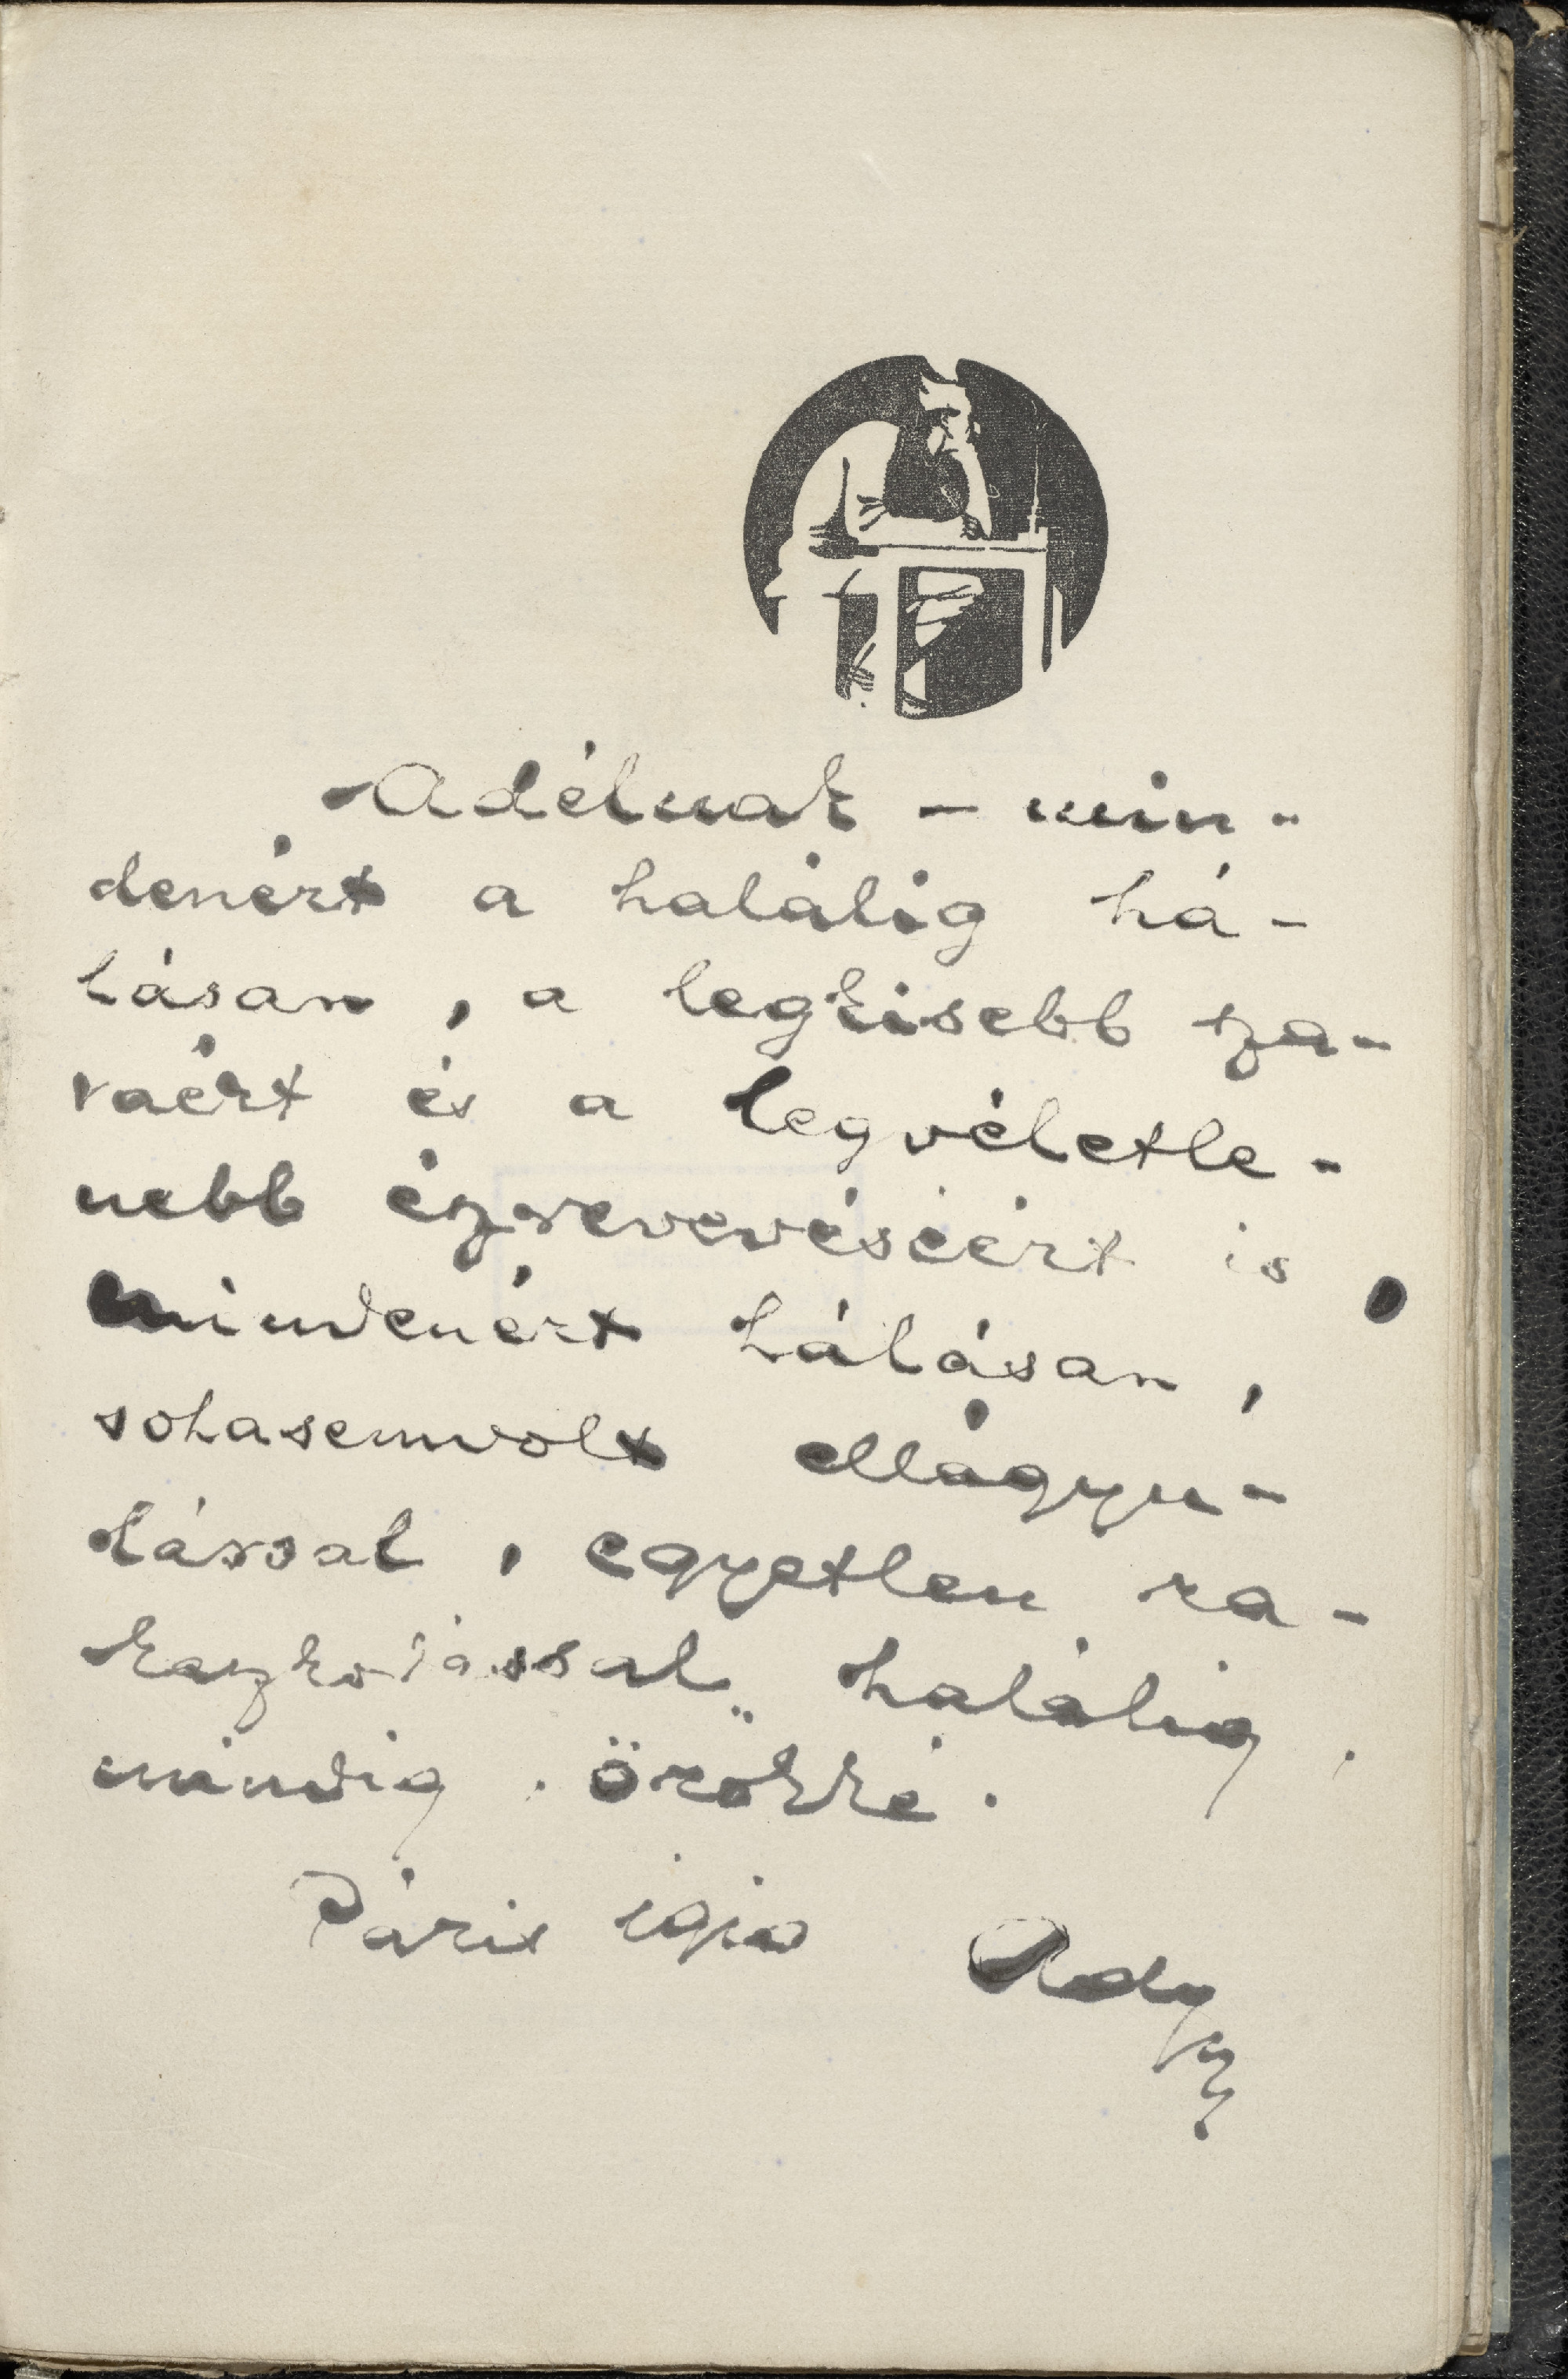 Adélnak – min-
denért a halálig há-
lásan, a legkisebb sza-
váért és a legvéletle-
nebb észrevevéséért is,
mindenért hálásan,
sohasemvolt ellágyu-
lással, egyetlen ra-
kaszkodással, halálig,
mindig, örökké.
Páris 1910 Ady